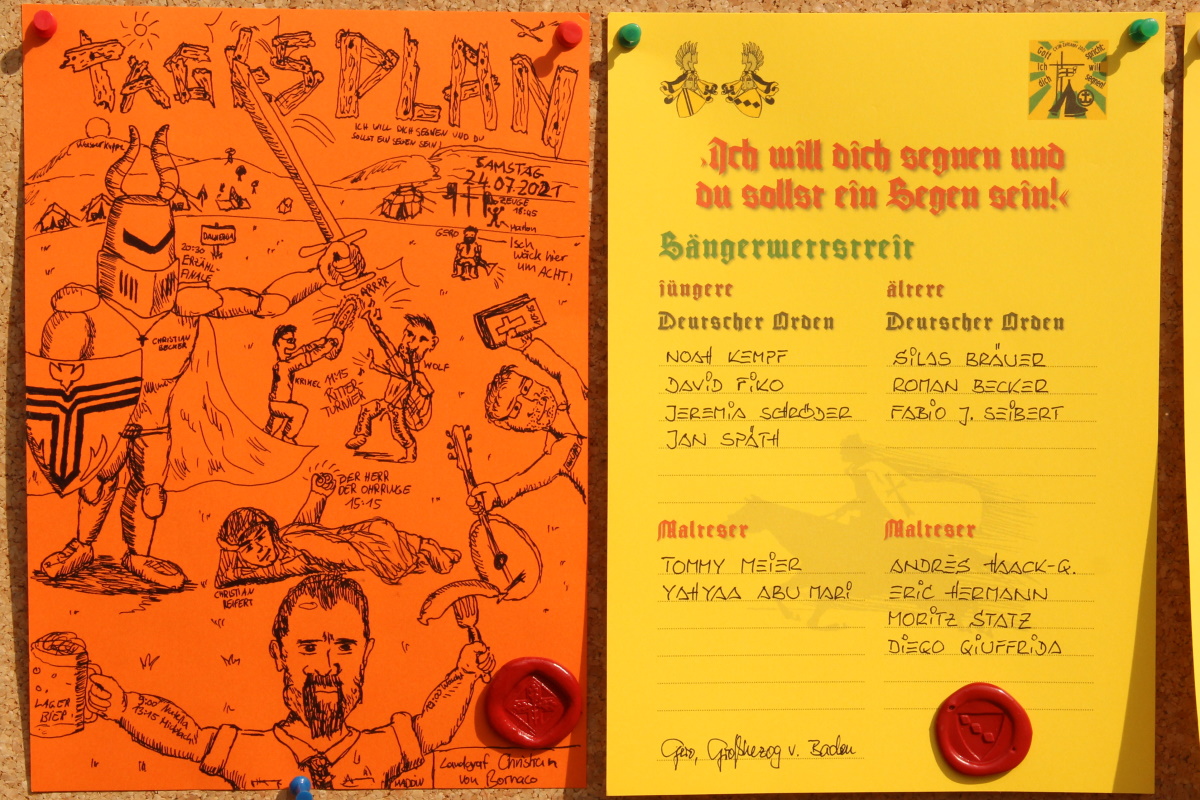 TAGESPLAN
ICH WILL DICH SEGNEN UND DU
SOLLST EIN SEGEN SEIN!
Wasserkuppe
SAMSTAG
24.07.2021
ZEUGE
18:45
Marlon
GERO
Isch
wäck hier
um ACHT!
20:30
ERZÄHL-
FINALE
ARRRR
CHRISTIAN
BECHER
KRIMEL
11:45
RITTER-
TURNIER
WOLF
DER HERR
DER OHRRINGE
15:15
CHRISTIAN
SEIFERT
LAGER
BIER
9:00
13:15
Landgraf Christian
von Bornaco
Gott spricht:
Ich will
dich segnen!
›Ich will dich segnen und
du sollst ein Segen sein!‹
Sängerwettstreit
jüngere
Deutscher Orden
NOAH KEMPF
DAVID FIKO
JEREMIA SCHRÖDER
JAN SPÄTH
ältere
Deutscher Orden
SILAS BRÄUER
ROMAN BECKER
FABIO J. SEIBERT
Malteser
TOMMY MEIER
YAHYAA ABU MARI
Malteser
ANDRÈS HAACK-Q.
ERIC HERMANN
MORITZ STATZ
DIEGO GIUFFRIDA
Gero, Großherzog v. Baden